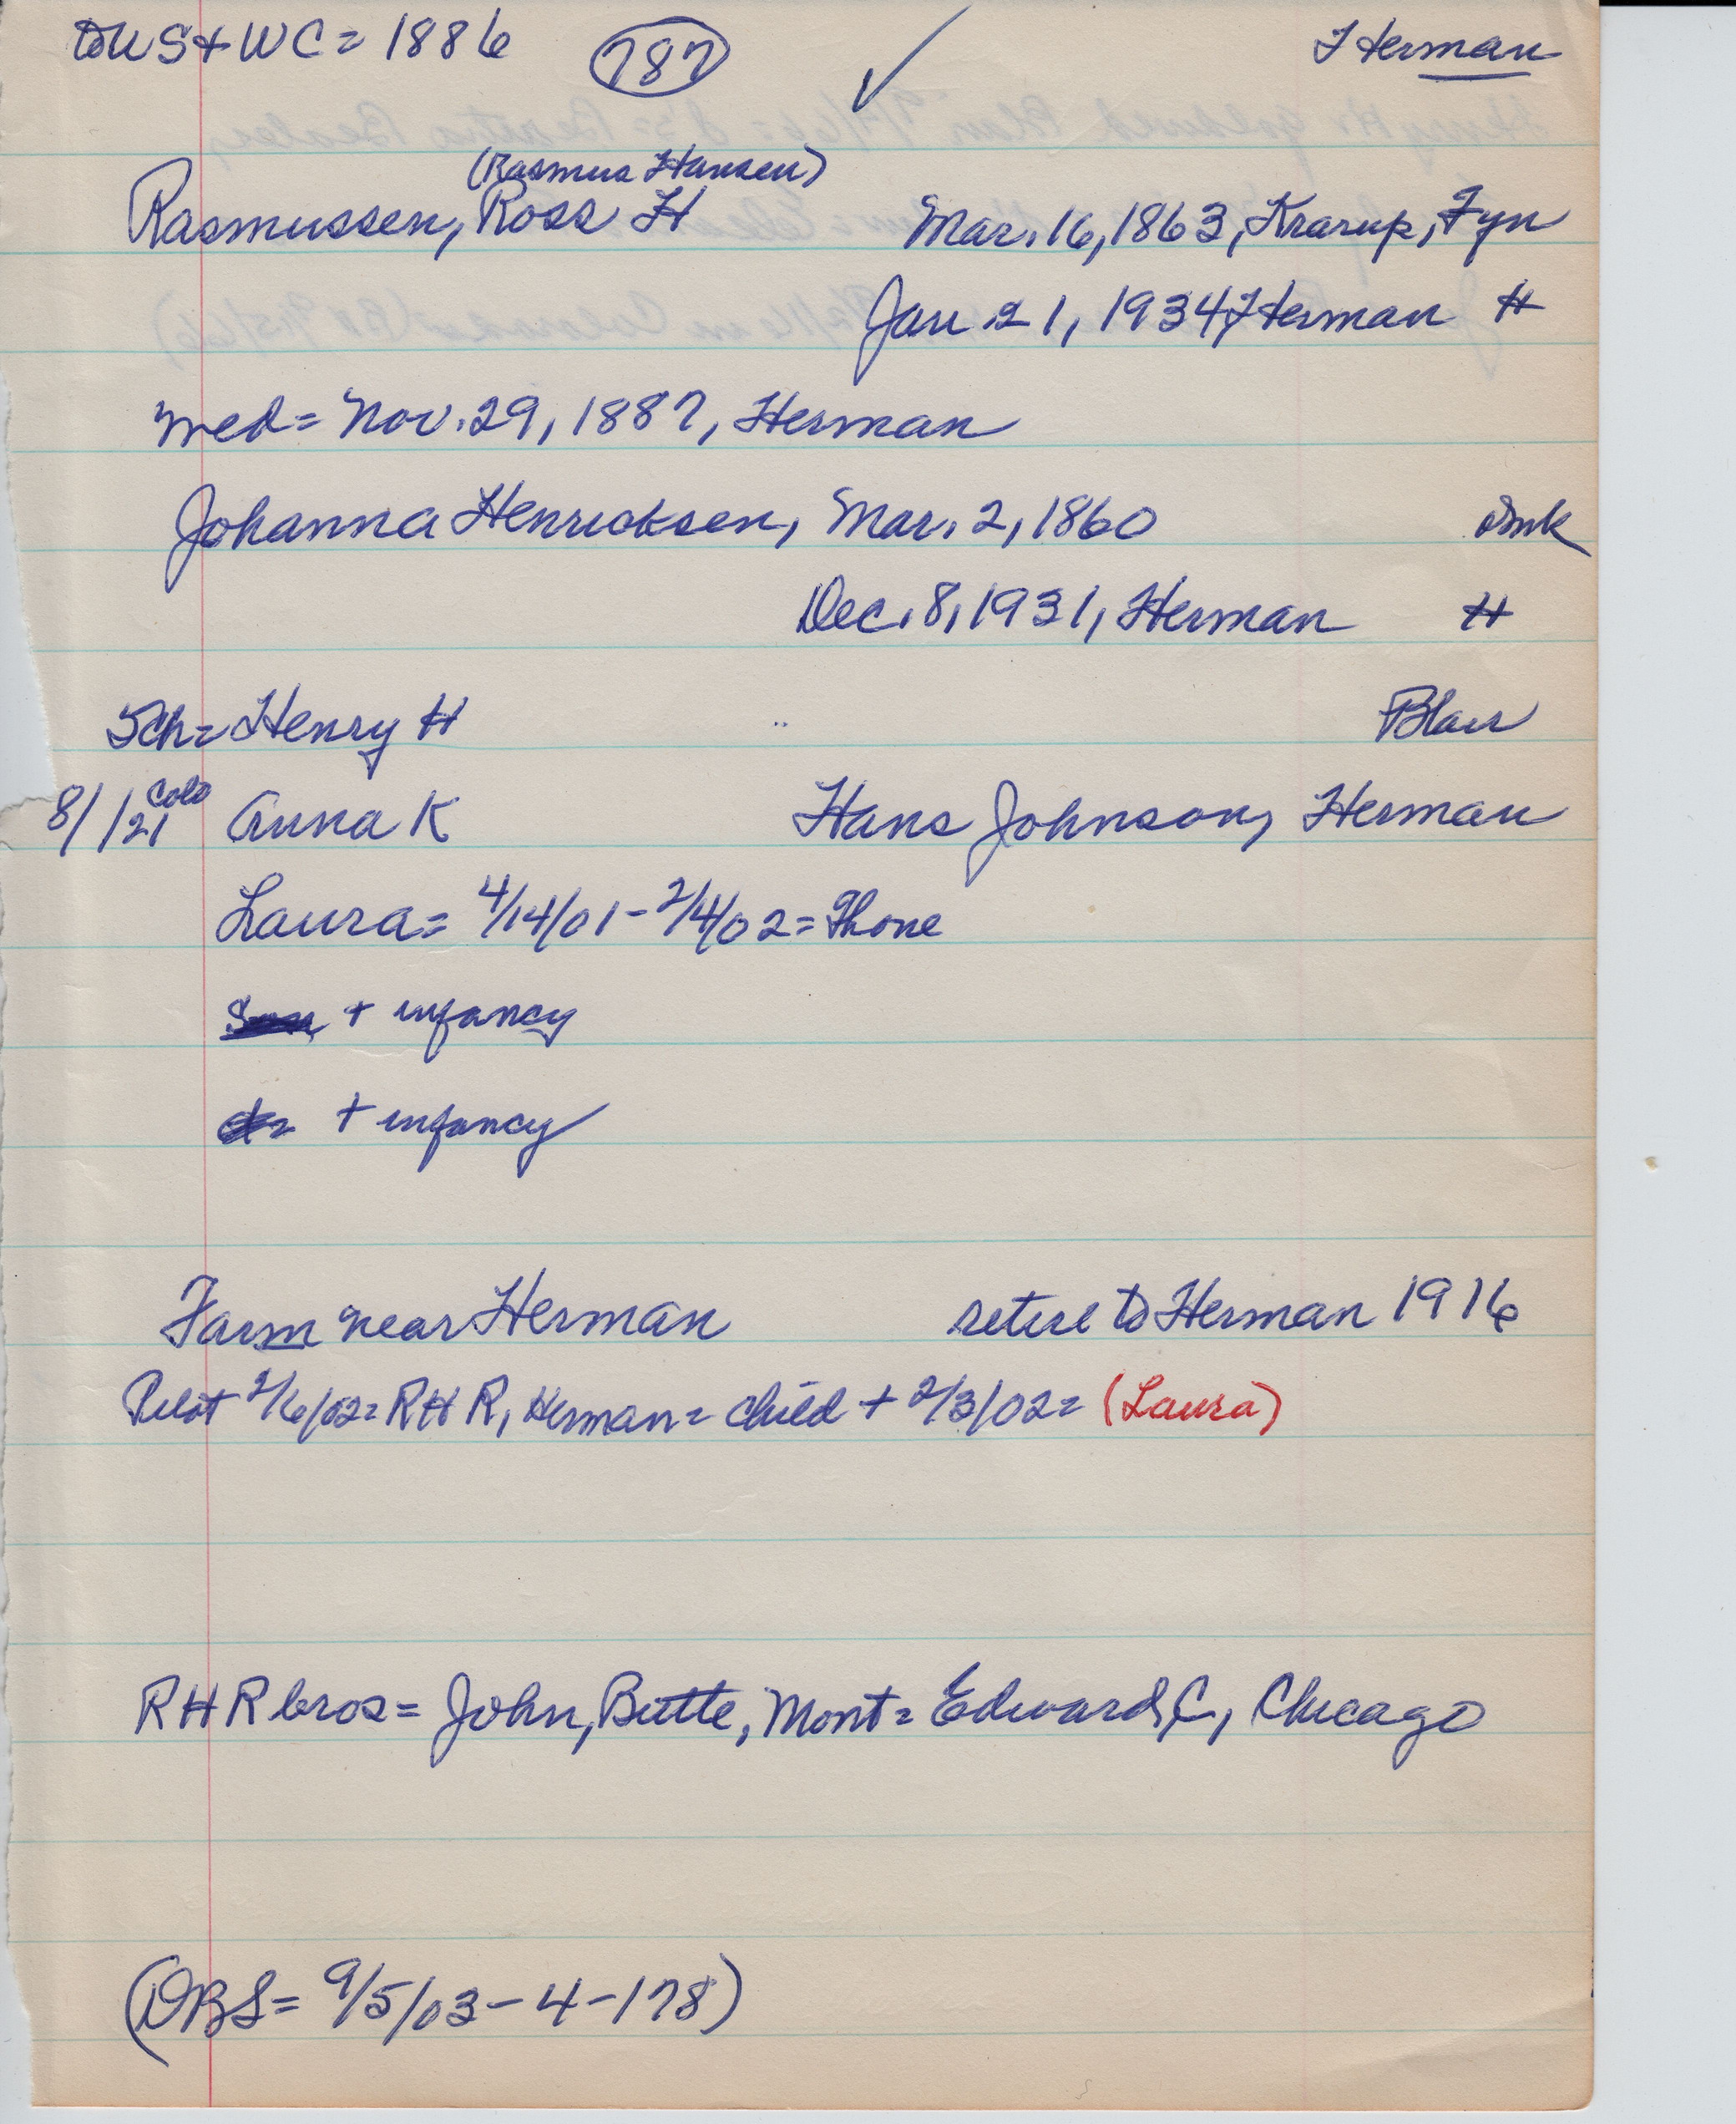 to US + WC = 1886 (787) ✓ Herman
(Rasmus Hansen)
Rasmussen, Ross H Mar. 16, 1863, Krarup, Fyn
Jan. 21, 1934, Herman H
med = Nov. 29, 1887, Herman
Johanna Henricksen, Mar. 2, 1860 Dmk
Dec. 8, 1931, Herman H
5ch = Henry H " Blair
8/ /21 Colo Anna K Hans Johnson, Herman
Laura = 4/14/01 - 2/4/02 = Phone
+ infancy
+ infancy
Farm near Herman retire to Herman 1916
Pilot 2/6/02 = RHR, Herman = child + 2/3/02 = (Laura)
RHR bros = John, Butte, Mont = Edward C, Chicago
(DBS = 9/5/03 - 4 - 178)